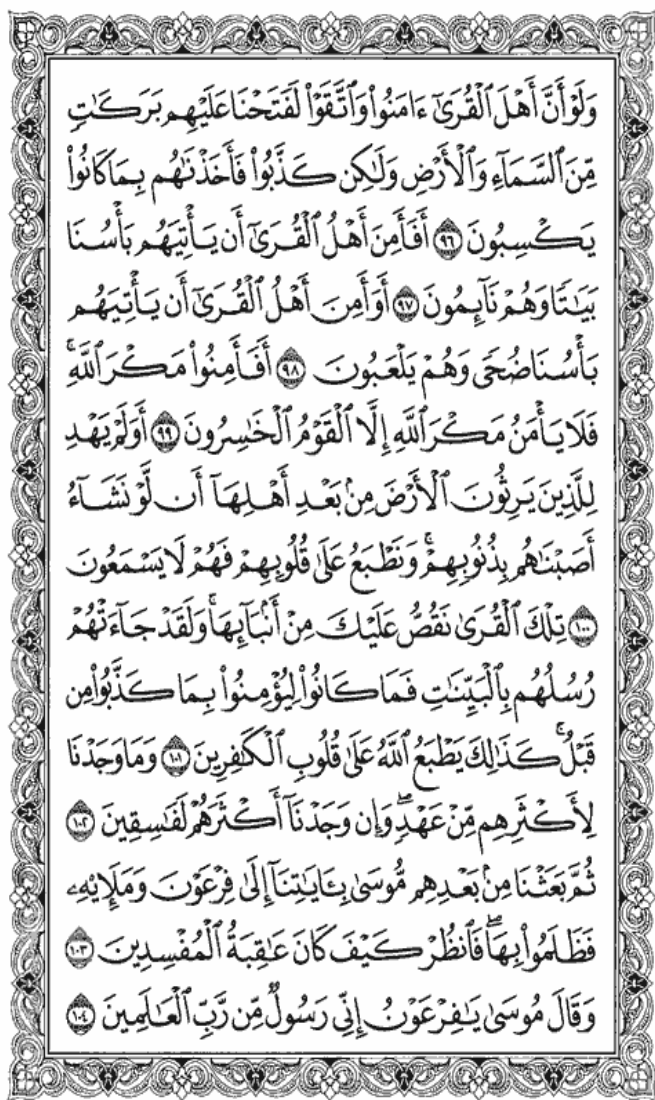 وَلَوْ أَنَّ أَهْلَ ٱلْقُرَىٰٓ ءَامَنُوا۟ وَٱتَّقَوْا۟ لَفَتَحْنَا عَلَيْهِم بَرَكَٰتٍ
مِّنَ ٱلسَّمَآءِ وَٱلْأَرْضِ وَلَٰكِن كَذَّبُوا۟ فَأَخَذْنَٰهُم بِمَا كَانُوا۟
يَكْسِبُونَ ٩٦ أَفَأَمِنَ أَهْلُ ٱلْقُرَىٰٓ أَن يَأْتِيَهُم بَأْسُنَا
بَيَٰتًا وَهُمْ نَآئِمُونَ ٩٧ أَوَأَمِنَ أَهْلُ ٱلْقُرَىٰٓ أَن يَأْتِيَهُم
بَأْسُنَا ضُحًى وَهُمْ يَلْعَبُونَ ٩٨ أَفَأَمِنُوا۟ مَكْرَ ٱللَّهِ ۚ
فَلَا يَأْمَنُ مَكْرَ ٱللَّهِ إِلَّا ٱلْقَوْمُ ٱلْخَٰسِرُونَ ٩٩ أَوَلَمْ يَهْدِ
لِلَّذِينَ يَرِثُونَ ٱلْأَرْضَ مِنۢ بَعْدِ أَهْلِهَآ أَن لَّوْ نَشَآءُ
أَصَبْنَٰهُم بِذُنُوبِهِمْ ۚ وَنَطْبَعُ عَلَىٰ قُلُوبِهِمْ فَهُمْ لَا يَسْمَعُونَ
١٠٠ تِلْكَ ٱلْقُرَىٰ نَقُصُّ عَلَيْكَ مِنْ أَنۢبَآئِهَا ۚ وَلَقَدْ جَآءَتْهُمْ
رُسُلُهُم بِٱلْبَيِّنَٰتِ فَمَا كَانُوا۟ لِيُؤْمِنُوا۟ بِمَا كَذَّبُوا۟ مِن
قَبْلُ ۚ كَذَٰلِكَ يَطْبَعُ ٱللَّهُ عَلَىٰ قُلُوبِ ٱلْكَٰفِرِينَ ١٠١ وَمَا وَجَدْنَا
لِأَكْثَرِهِم مِّنْ عَهْدٍ ۖ وَإِن وَجَدْنَآ أَكْثَرَهُمْ لَفَٰسِقِينَ ١٠٢
ثُمَّ بَعَثْنَا مِنۢ بَعْدِهِم مُّوسَىٰ بِـَٔايَٰتِنَآ إِلَىٰ فِرْعَوْنَ وَمَلَإِي۟هِۦ
فَظَلَمُوا۟ بِهَا ۖ فَٱنظُرْ كَيْفَ كَانَ عَٰقِبَةُ ٱلْمُفْسِدِينَ ١٠٣
وَقَالَ مُوسَىٰ يَٰفِرْعَوْنُ إِنِّى رَسُولٌ مِّن رَّبِّ ٱلْعَٰلَمِينَ ١٠٤